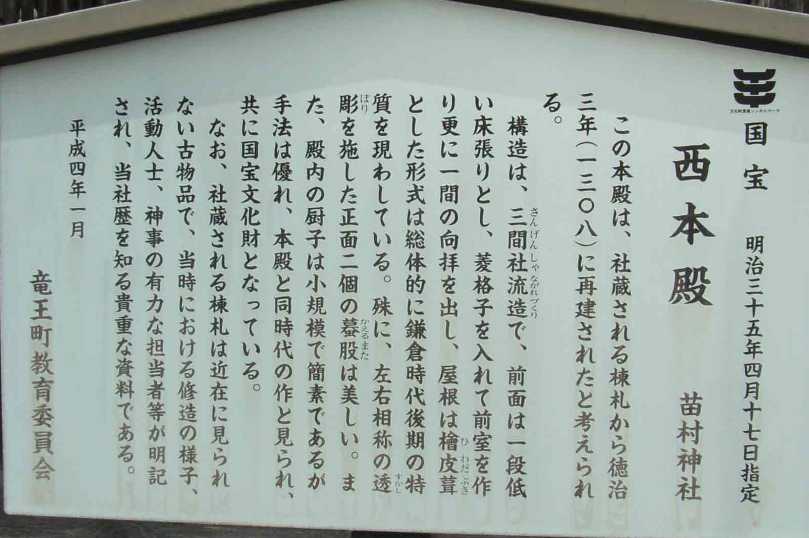 国宝　明治三十五年四月十七日指定
西本殿　苗村神社
この本殿は、社蔵される棟札から徳治
三年（一三〇八）に再建されたと考えられ
る。
構造は、三間社流造で、前面は一段低
い床張りとし、菱格子を入れて前室を作
り更に一間の向拝を出し、屋根は檜皮葺
とした形式は総体的に鎌倉時代後期の特
質を現わしている。殊に、左右相称の透
彫を施した正面二個の蟇股は美しい。ま
た、殿内の厨子は小規模で簡素であるが
手法は優れ、本殿と同時代の作と見られ、
共に国宝文化財となっている。
なお、社蔵される棟札は近在に見られ
ない古物品で、当時における修造の様子、
活動人士、神事の有力な担当者等が明記
され、当社歴を知る貴重な資料である。
平成四年一月
竜王町教育委員会